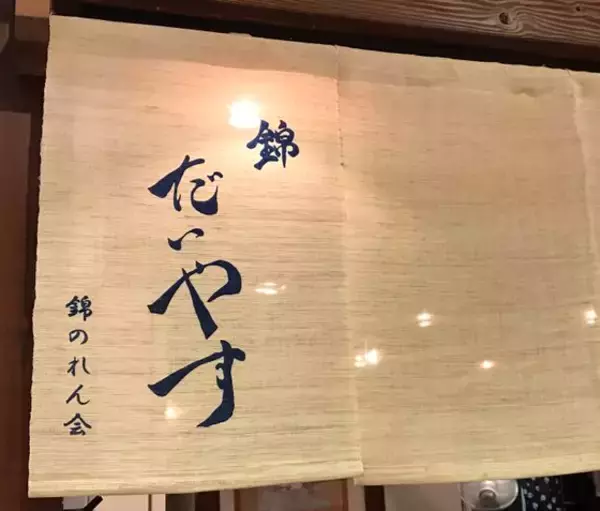 錦
だいやす
錦のれん会